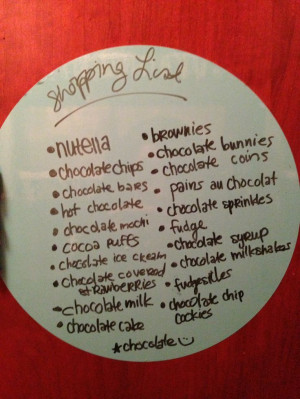 Shopping List
• nutella
• chocolate chips
• chocolate bars
• hot chocolate
• chocolate mochi
• cocoa puffs
• chocolate ice cream
• chocolate covered
strawberries
• chocolate milk
• chocolate cake
• brownies
• chocolate bunnies
• chocolate coins
• pains au chocolat
• chocolate sprinkles
• fudge
• chocolate syrup
• chocolate milkshakes
• fudgesicles
• chocolate chip
cookies
*chocolate